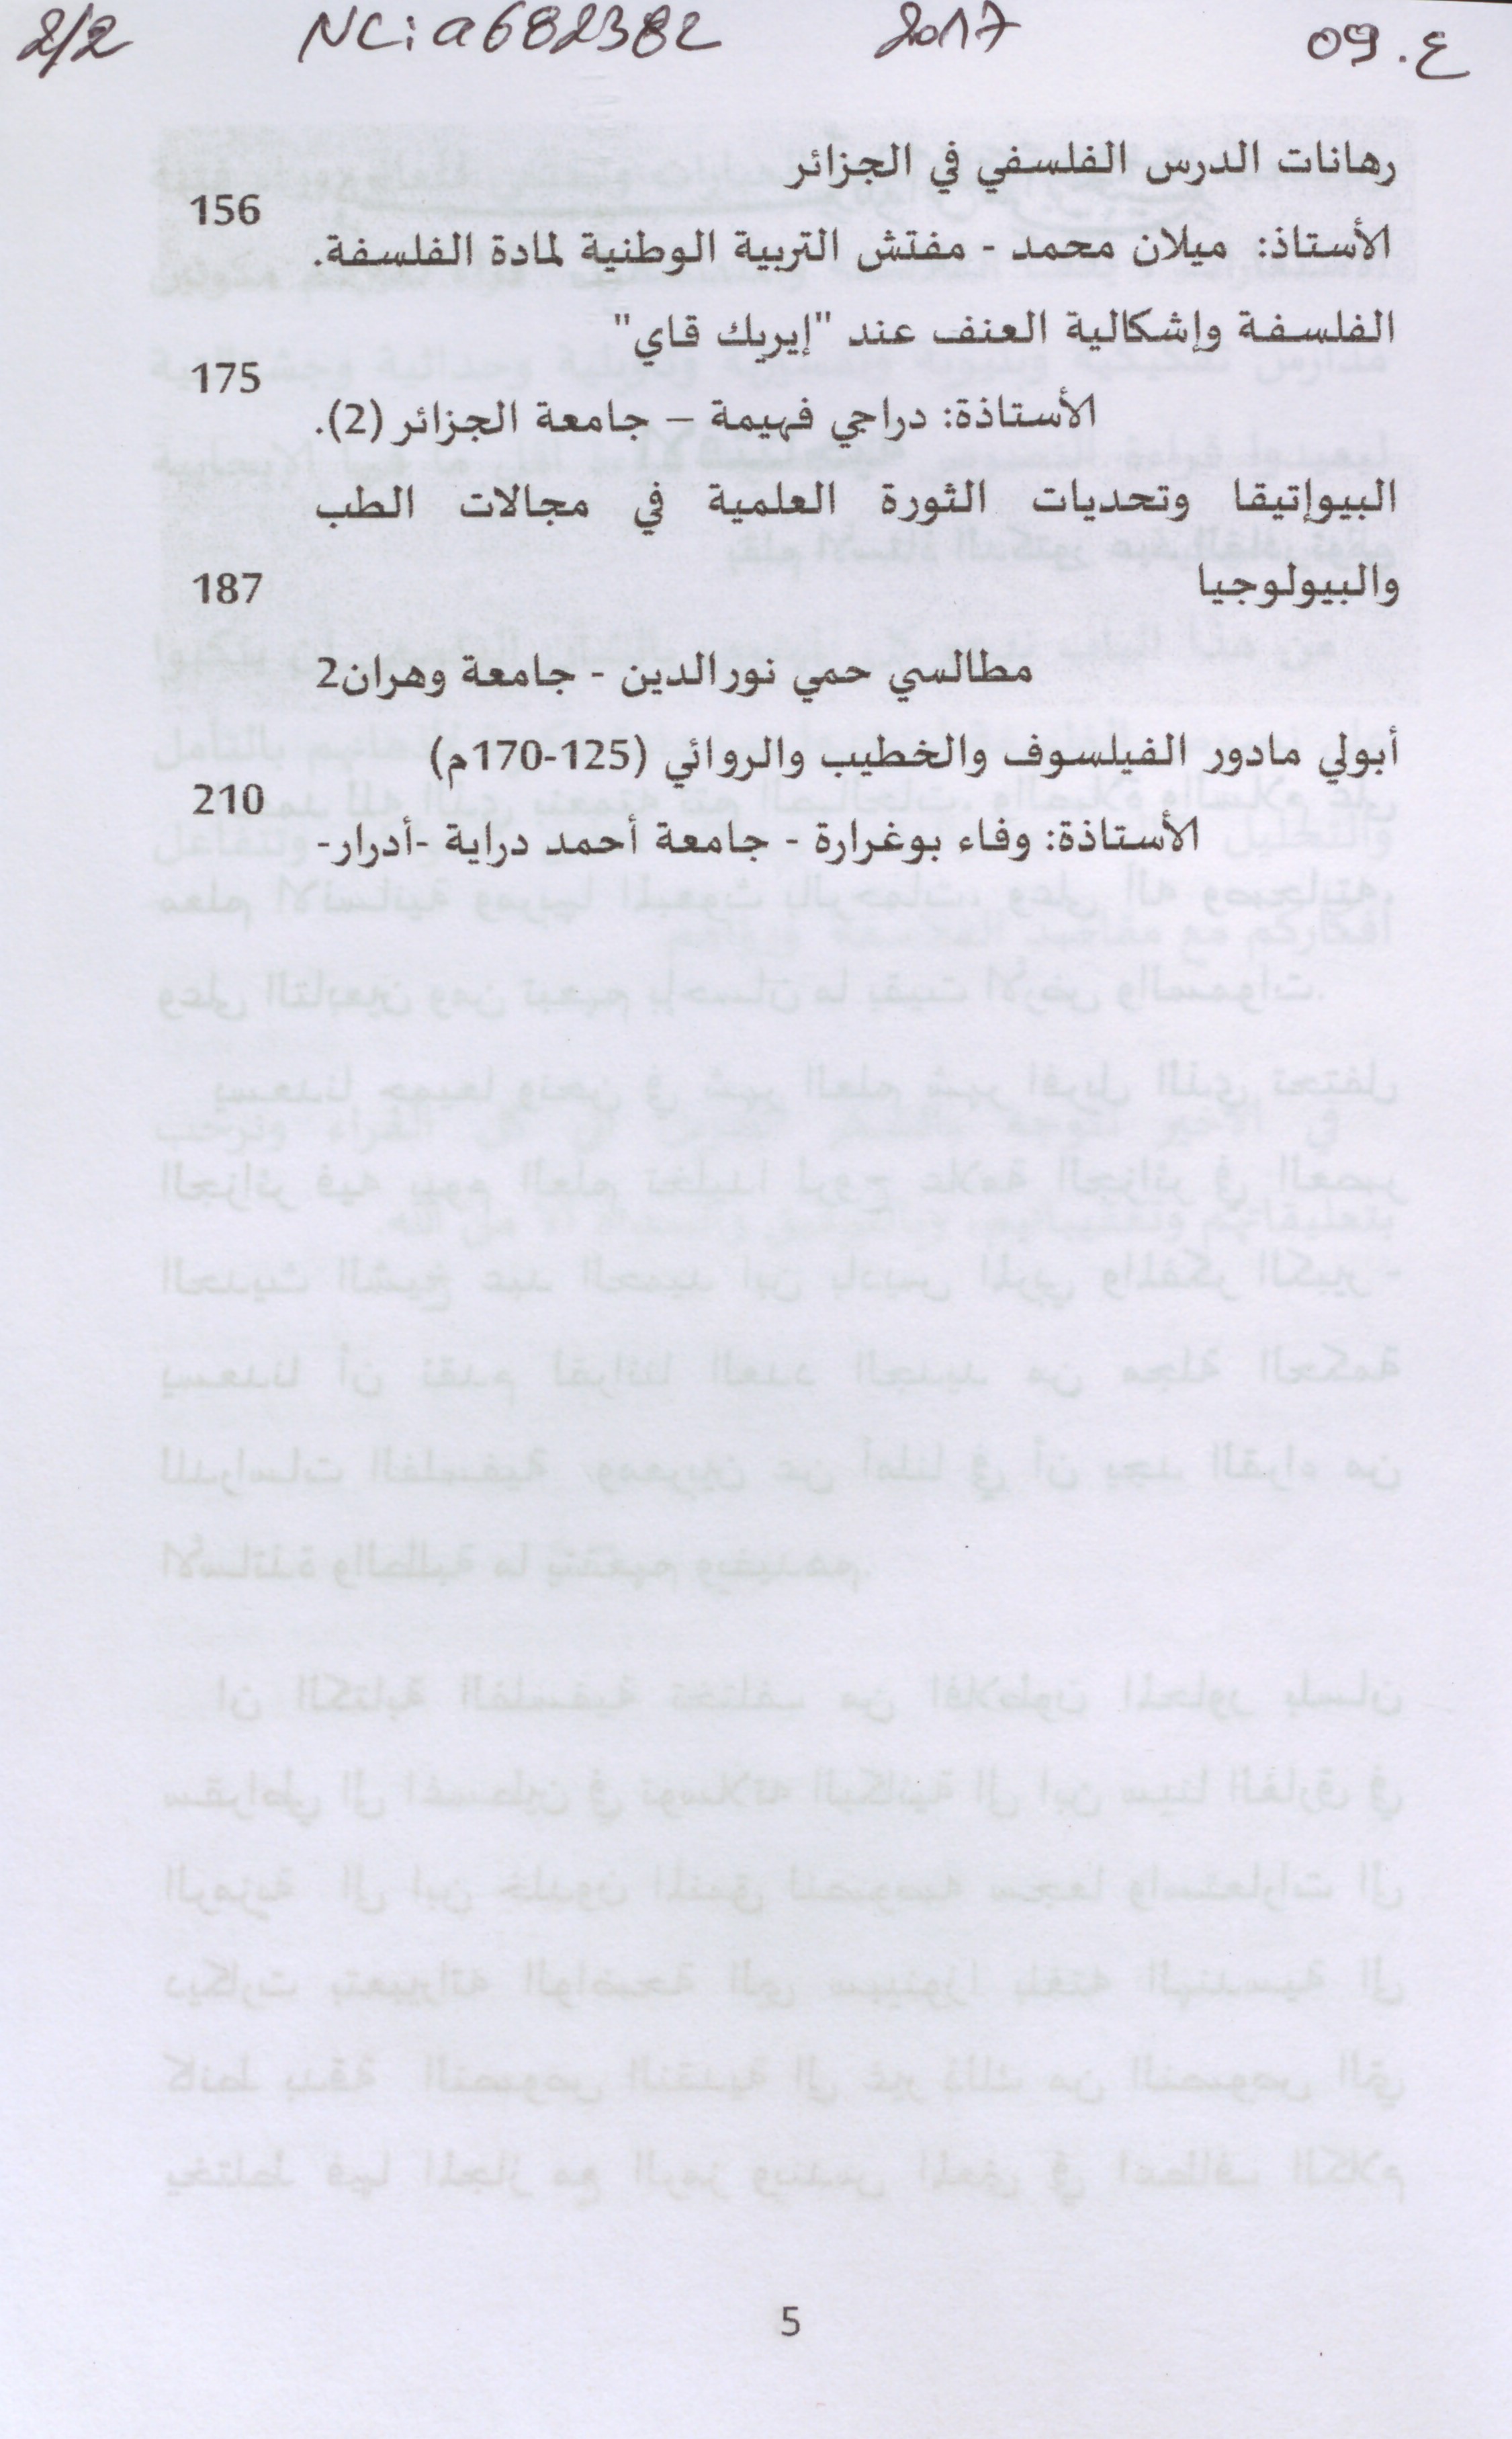 2/2 NC: a682382 2017 ع. 09
رهانات الدرس الفلسفي في الجزائر
156
الأستاذ: ميلان محمد - مفتش التربية الوطنية لمادة الفلسفة.
الفلسفة وإشكالية العنف عند "إيريك قاي"
175
الأستاذة: دراجي فهيمة – جامعة الجزائر (2).
البيوإتيقا وتحديات الثورة العلمية في مجالات الطب
والبيولوجيا 187
مطالسي حمي نورالدين - جامعة وهران2
أبولي مادور الفيلسوف والخطيب والروائي (125-170م)
210
الأستاذة: وفاء بوغرارة - جامعة أحمد دراية -أدرار-
5